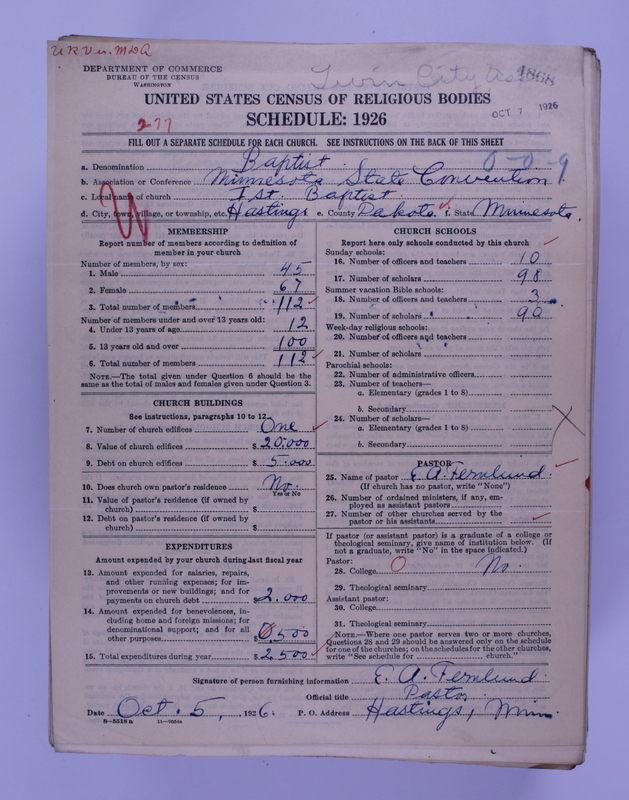 U R Ver. MDA
DEPARTMENT OF COMMERCE
BUREAU OF THE CENSUS
WASHINGTON
Twin City As
1868
UNITED STATES CENSUS OF RELIGIOUS BODIES
SCHEDULE: 1926
OCT 7 1926
277
FILL OUT A SEPARATE SCHEDULE FOR EACH CHURCH. SEE INSTRUCTIONS ON THE BACK OF THIS SHEET
0-0-9
a. Denomination Baptist
b. Association or Conference Minnesota State Convention
c. Local name of church 1st. Baptist
d. City, town, village, or township, etc. Hastings e. County Dakota f. State Minnesota.
MEMBERSHIP
Report number of members according to definition of
member in your church
Number of members, by sex:
1. Male 45
2. Female 67
3. Total number of members 112
Number of members under and over 13 years old:
4. Under 13 years of age 12
5. 13 years old and over 100
6. Total number of members 112
NOTE.—The total given under Question 6 should be the
same as the total of males and females given under Question 3.
CHURCH BUILDINGS
See instructions, paragraphs 10 to 12
7. Number of church edifices One
8. Value of church edifices $ 20.000
9. Debt on church edifices $ 5.000
10. Does church own pastor's residence? No.
Yes or No
11. Value of pastor's residence (if owned by
church) $
12. Debt on pastor's residence (if owned by
church) $
EXPENDITURES
Amount expended by your church during last fiscal year
13. Amount expended for salaries, repairs,
and other running expenses; for im-
provements or new buildings; and for
payments on church debt $ 2.000
14. Amount expended for benevolences, in-
cluding home and foreign missions; for
denominational support; and for all
other purposes $ 500
15. Total expenditures during year $ 2500
CHURCH SCHOOLS
Report here only schools conducted by this church
Sunday schools:
16. Number of officers and teachers 10
17. Number of scholars 98
Summer vacation Bible schools:
18. Number of officers and teachers 3
19. Number of scholars 90
Week-day religious schools:
20. Number of officers and teachers
21. Number of scholars
Parochial schools:
22. Number of administrative officers
23. Number of teachers—
a. Elementary (grades 1 to 8)
b. Secondary
24. Number of scholars—
a. Elementary (grades 1 to 8)
b. Secondary
PASTOR
25. Name of pastor E. A. Fernlund.
(If church has no pastor, write "None")
26. Number of ordained ministers, if any, em-
ployed as assistant pastors
27. Number of other churches served by the
pastor or his assistants
If pastor (or assistant pastor) is a graduate of a college or
theological seminary, give name of institution below. (If
not a graduate, write "No" in the space indicated.)
Pastor:
28. College O No.
29. Theological seminary
Assistant pastor:
30. College
31. Theological seminary
NOTE.—Where one pastor serves two or more churches,
Questions 28 and 29 should be answered only on the schedule
for one of the churches; on the schedules for the other churches,
write "See schedule for church."
Signature of person furnishing information E. A. Fernlund.
Official title Pastor
Date Oct. 5, , 1926. P. O. Address Hastings, Minn.
8-5518a